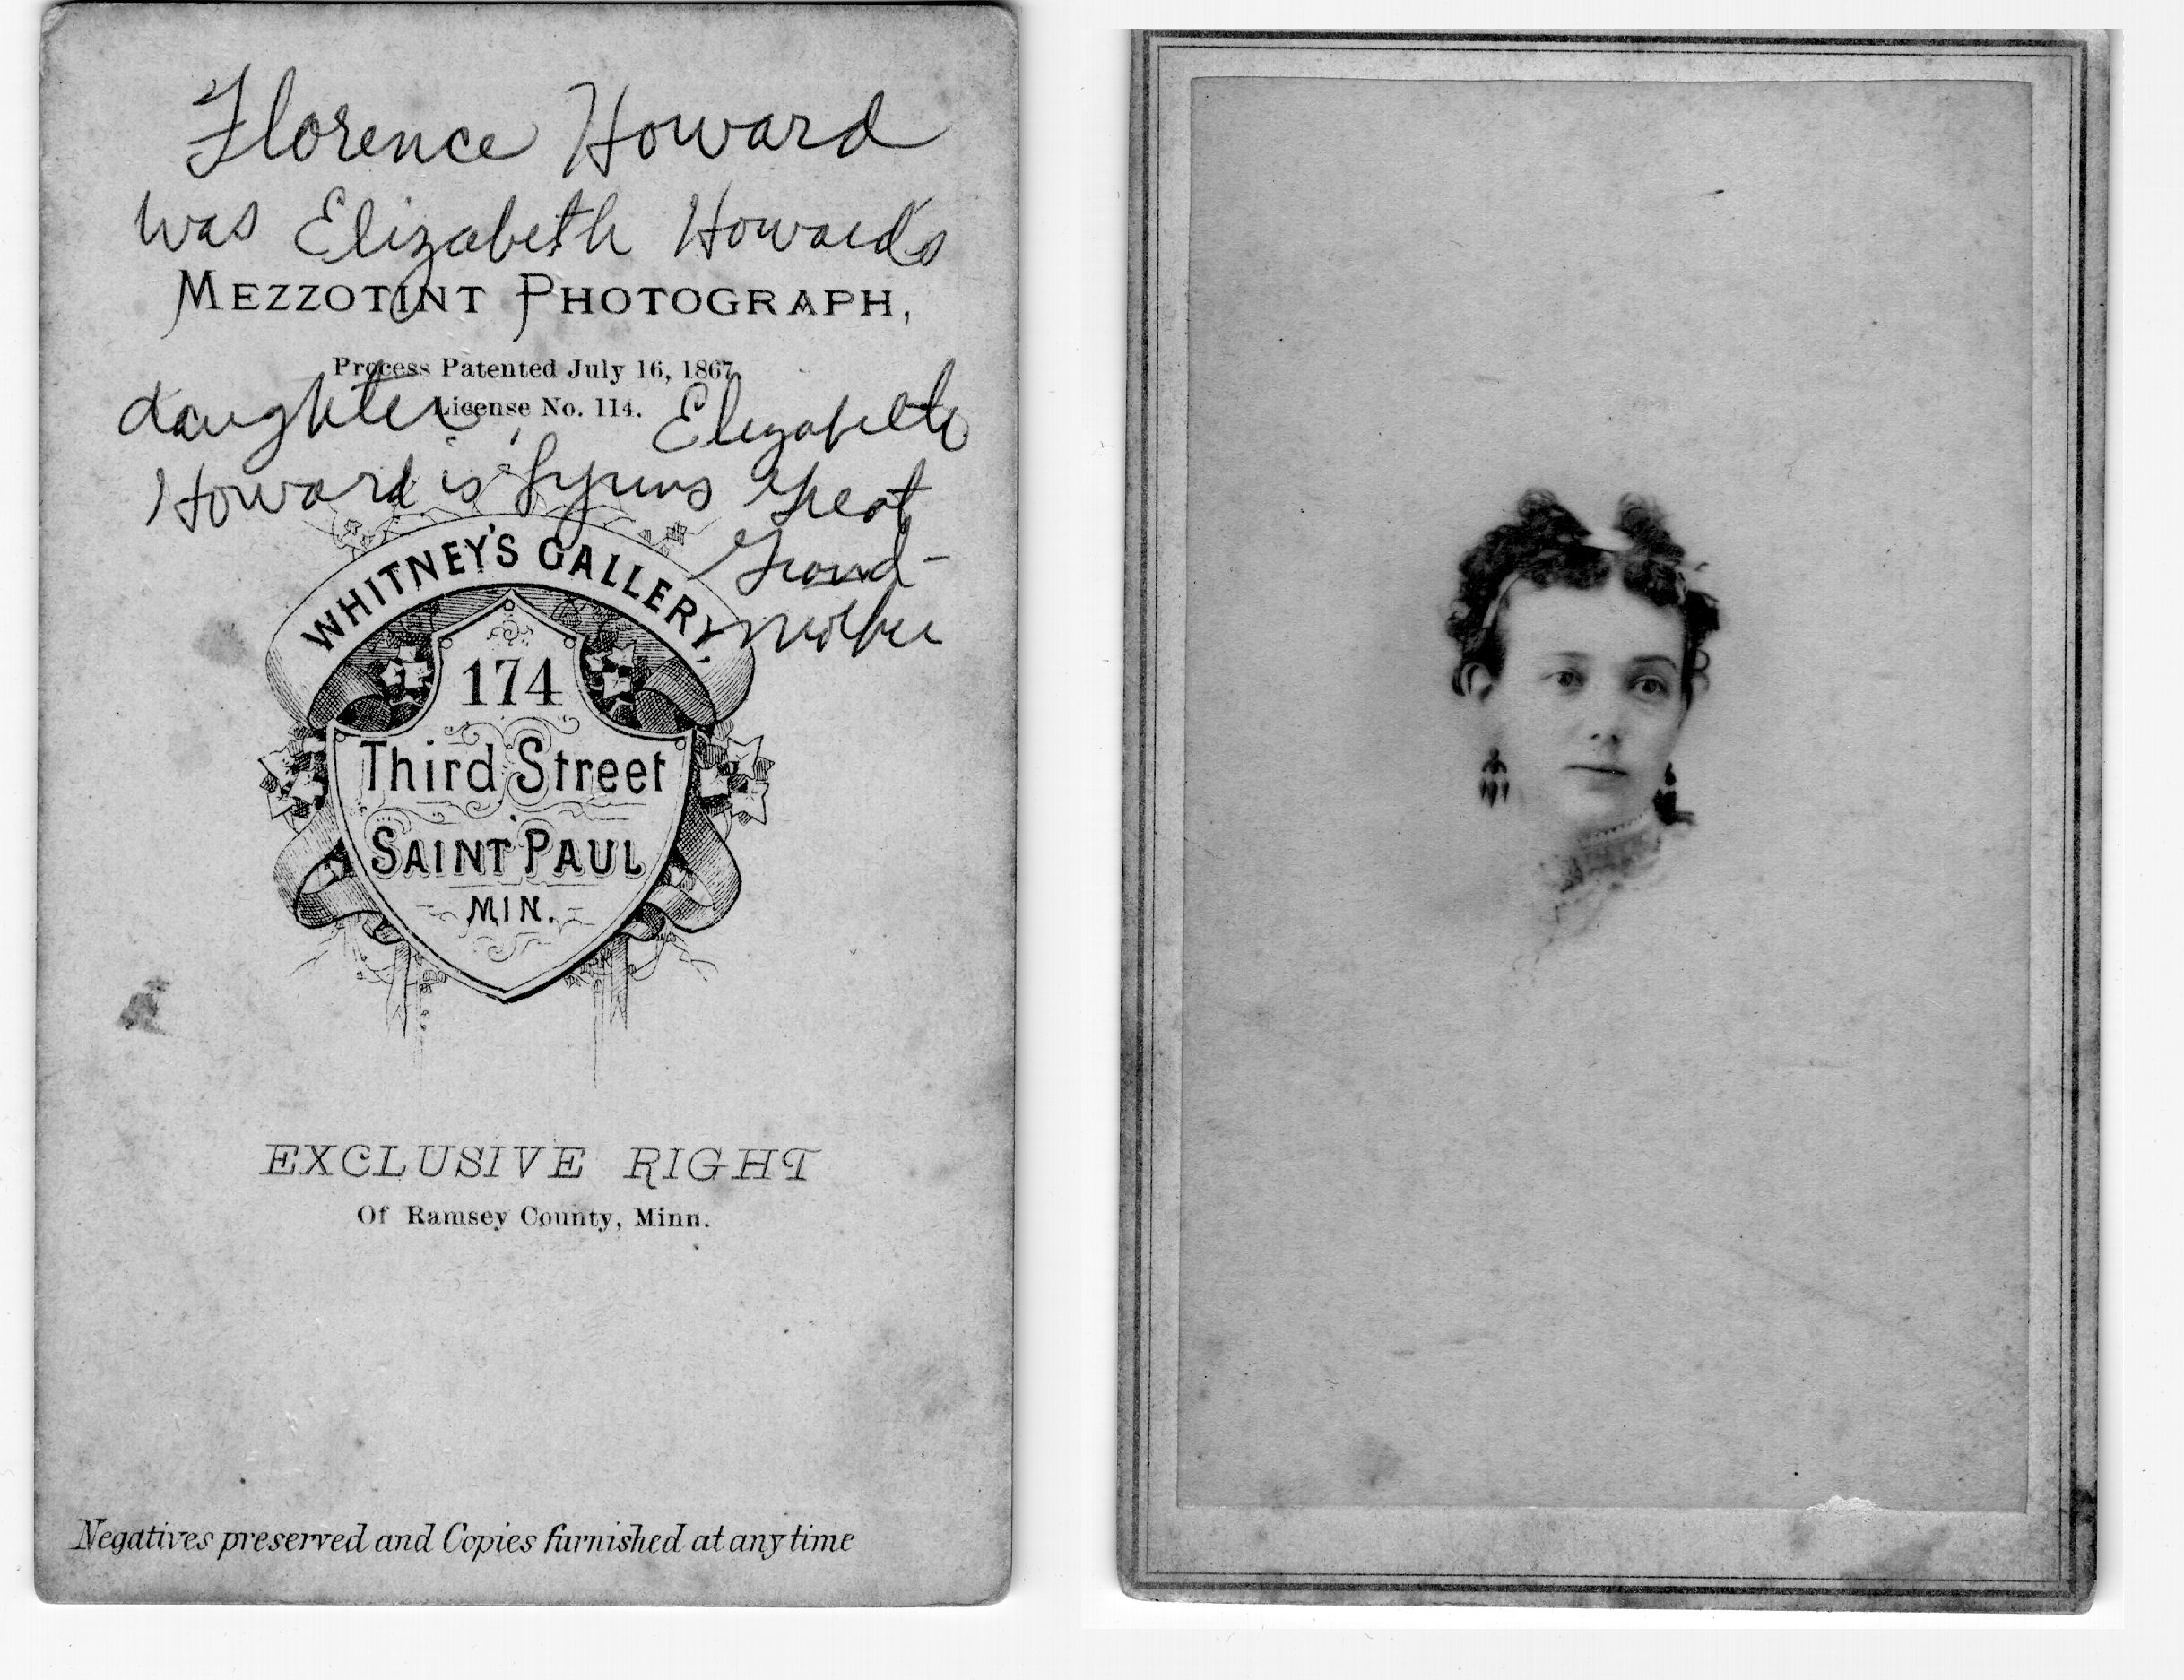 Florence Howard
was Elizabeth Howard's
MEZZOTINT PHOTOGRAPH,
Process Patented July 16, 1867.
License No. 114.
daughter, Elizabeth
Howard is great
Grand-
mother
WHITNEY'S GALLERY,
174
Third Street
SAINT PAUL
MIN.
EXCLUSIVE RIGHT
Of Ramsey County, Minn.
Negatives preserved and Copies furnished at any time